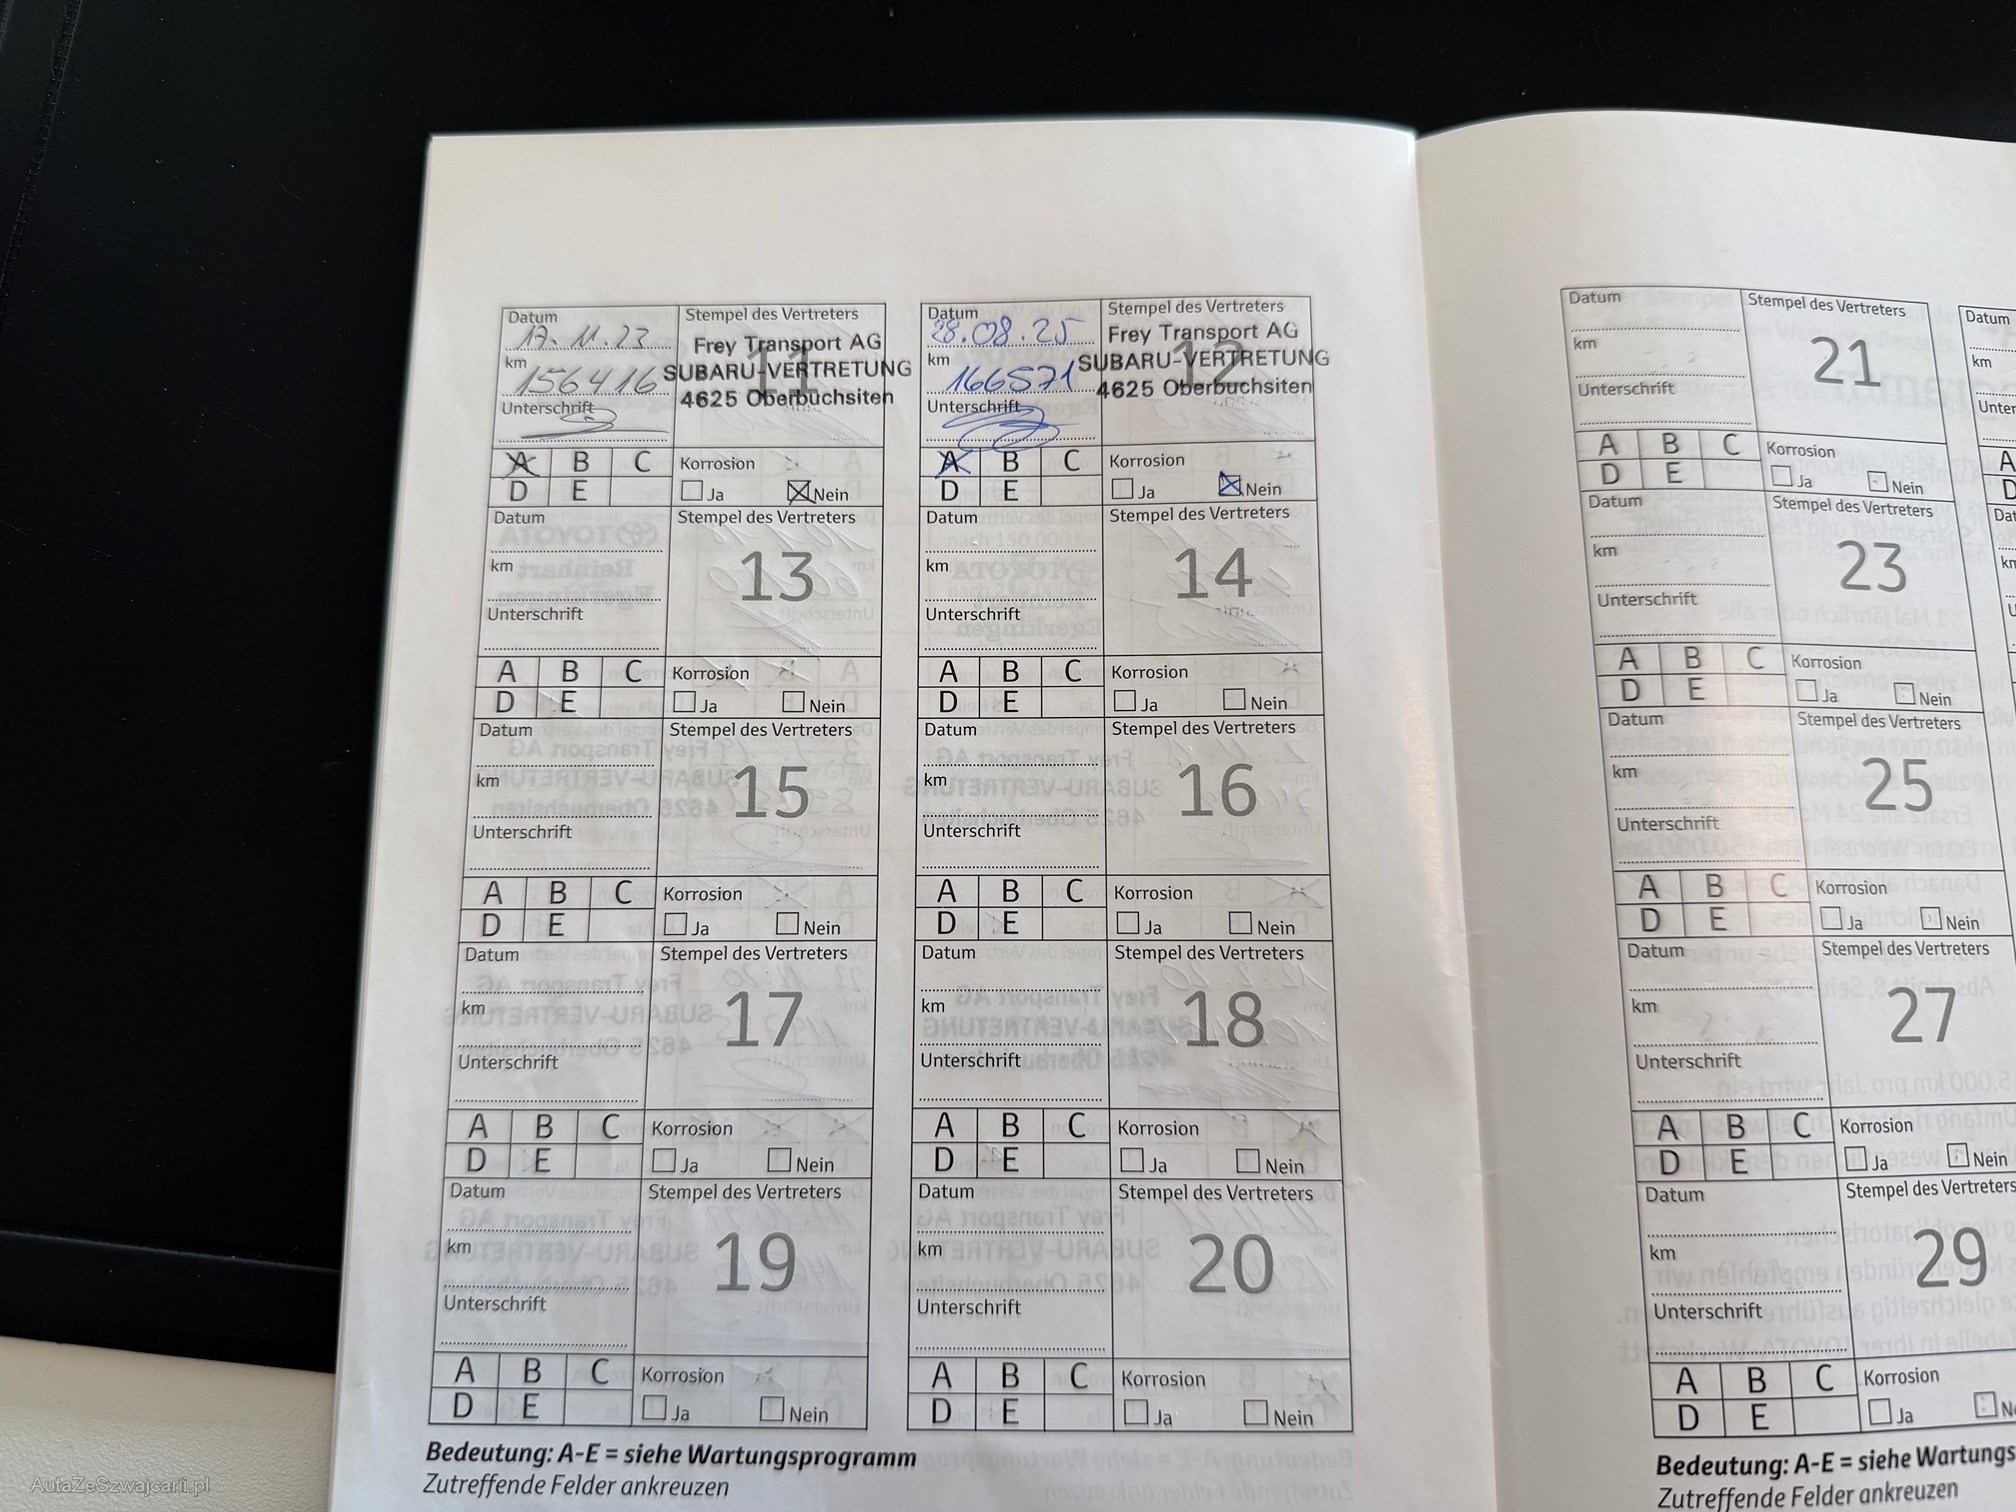 Datum 17.11.23
Stempel des Vertreters
11
Frey Transport AG
km 156416
SUBARU-VERTRETUNG
4625 Oberbuchsiten
Unterschrift
A B C
D E
Korrosion
Ja Nein
Datum 28.08.25
Stempel des Vertreters
12
Frey Transport AG
km 166571
SUBARU-VERTRETUNG
4625 Oberbuchsiten
Unterschrift
A B C
D E
Korrosion
Ja Nein
Datum
Stempel des Vertreters
km
13
Unterschrift
A B C
D E
Korrosion
Ja Nein
Datum
Stempel des Vertreters
km
14
Unterschrift
A B C
D E
Korrosion
Ja Nein
Datum
Stempel des Vertreters
km
15
Unterschrift
A B C
D E
Korrosion
Ja Nein
Datum
Stempel des Vertreters
km
16
Unterschrift
A B C
D E
Korrosion
Ja Nein
Datum
Stempel des Vertreters
km
17
Unterschrift
A B C
D E
Korrosion
Ja Nein
Datum
Stempel des Vertreters
km
18
Unterschrift
A B C
D E
Korrosion
Ja Nein
Datum
Stempel des Vertreters
km
19
Unterschrift
A B C
D E
Korrosion
Ja Nein
Datum
Stempel des Vertreters
km
20
Unterschrift
A B C
D E
Korrosion
Ja Nein
Bedeutung: A-E = siehe Wartungsprogramm
Zutreffende Felder ankreuzen
Datum
Stempel des Vertreters
km
21
Unterschrift
A B C
D E
Korrosion
Ja Nein
Datum
Stempel des Vertreters
km
23
Unterschrift
A B C
D E
Korrosion
Ja Nein
Datum
Stempel des Vertreters
km
25
Unterschrift
A B C
D E
Korrosion
Ja Nein
Datum
Stempel des Vertreters
km
27
Unterschrift
A B C
D E
Korrosion
Ja Nein
Datum
Stempel des Vertreters
km
29
Unterschrift
A B C
D E
Korrosion
Ja
Datum
km
A
D
Bedeutung: A-E = siehe
Zutreffende Felder ankreuzen
AutaZeSzwajcarii.pl